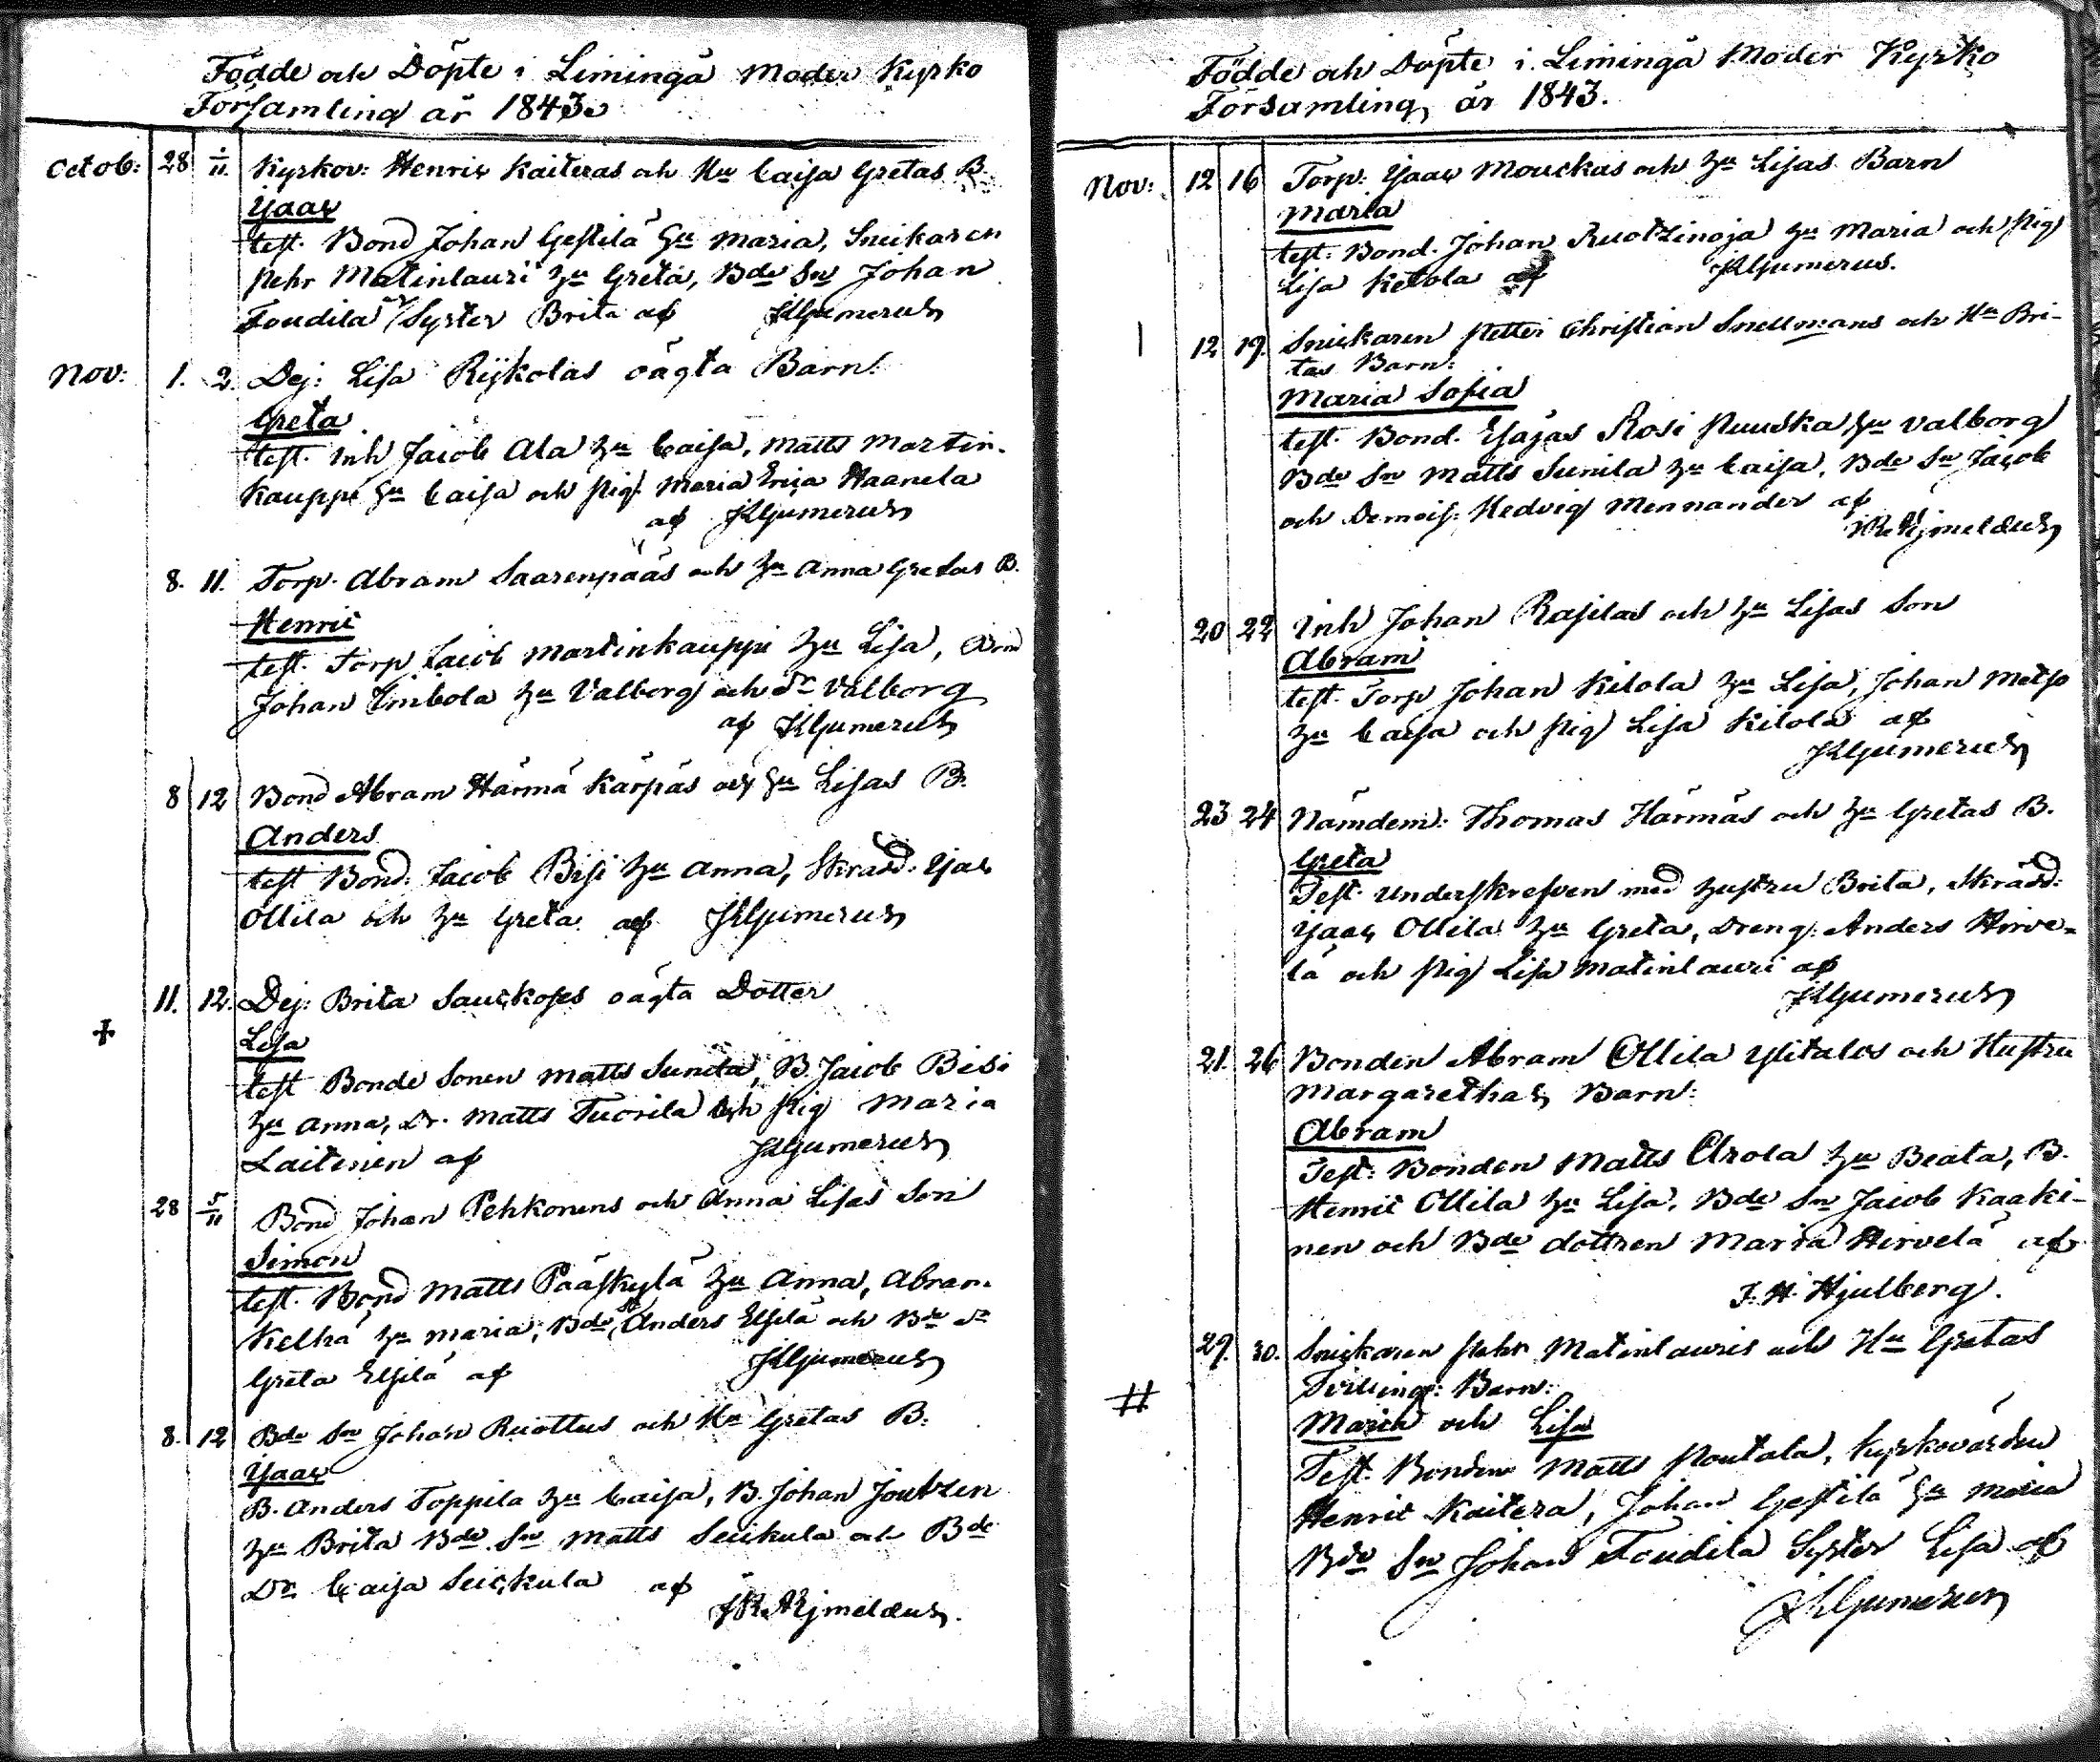 Födde och Döpte i Limingå Moder Kyrko
Församling år 1843.
Octob: 28 1/11. Kyrkov: Henric Kaiteras och Hu Caisa Gretas B.
Isaac
test. Bond Johan Gestilä hu Maria, Snickaren
Pehr Matinlauri hu Greta, Bde Sn Johan
Toudila Syster Brita af JKGumerus
Nov: 1. 2. Dej: Lisa Rijkolas oägta Barn:
Greta
test. Inh Jacob Ala hu Caisa, Matts Martin-
kauppi hu Caisa och Pig. Maria Erica Haanela
af JKGumerus
8. 11. Torp. Abram Saarenpääs och hu Anna Gretas B.
Henric
test. Torp Jacob Martinkauppi hu Lisa,
Johan hu Valborg och Dr Valborg
af JKGumerus
8 12 Bond Abram Härmä Kärpäs och hu Lisas B.
Anders
test Bond. Jacob Bisi hu Anna, Skrädd. Isac
Ollila och hu Greta af JKGumerus
11. 12. Dej: Brita Sauckojes oägta Dotter
Lisa
test Bonde Sonen Matts Sunila, B. Jacob Bisi
hu Anna, Dr. Matts Tuorila och Pig Maria
Laitinen af JKGumerus
28 5/11 Bond Johan Pehkonens och Anna Lisas Son
Simon
test. Bond Matts Pääskylä hu Anna, Abram
Kelhä hu Maria, Bde Sn Anders Elfilä och Bde Dr
Greta Elfilä af JKGumerus
8. 12 Bde Sn Johan Ruottus och Hu Gretas B.
Isaac
B. Anders Toppila hu Caisa, B. Johan Joutzen
hu Brita Bde Sn Matts Seickula och Bde
Dr Caisa Seickula af
Födde och Döpte i Limingå Moder Kyrko
Församling år 1843.
Nov: 12 16 Torp: Isaac Mouckas och hu Lisas Barn
Maria
test. Bond. Johan Ruotzinoja hu Maria och Pig
Lisa Ketola af JKGumerus.
12 19. Snickaren Petter Christian Snellmans och Hu Bri-
tas Barn:
Maria Sofia
test. Bond. Esajas Rosi Ruuska hu Valborg
Bde Sn Matts Sunila hu Caisa, Bde Sn Jacob
och Demois: Hedvig Mennander af
20 22 Inh Johan Rasilas och hu Lisas Son
Abram
test. Torp Johan Kilola hu Lisa, Johan Metso
hu Caisa och Pig Lisa Kilola af
JKGumerus
23 24 Nämdem: Thomas Härmäs och hu Gretas B.
Greta
Test. Underskrefven med hustru Brita, Skrädd:
Isaac Ollila hu Greta, Dreng. Anders Hirve-
lä och Pig Lisa Matinlauri af
JKGumerus
21. 26 Bonden Abram Ollila Ylitalos och Hustru
Margarethas Barn:
Abram
Test: Bonden Matts Arola hu Beata, B.
Henric Ollila hu Lisa, Bde Sn Jacob Kaaki-
nen och Bde dottren Maria Hirvelä af
J. H. Hjulberg.
29. 30. Snickaren Pehr Matinlauris och Hu Gretas
Tvilling: Barn:
Maria och Lisa
Test. Bonden Matts Poutala, Kyrkovärden
Henric Kaitera, Johan Gestilä hu Maria
Bde Sn Johan Toudila Syster Lisa af
JKGumerus